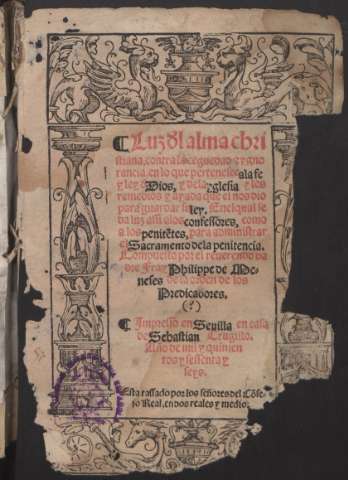 ¶ Luz dl alma chri
stiana, contra la ceguedad e ygno
rancia, en lo que pertenesce a la fe
y ley d Dios, y de la yglesia y los
remedios y ayuda que el nos dio
para guardar su ley. En el qual se
da luz assi a los confessores, como
a los penitẽtes, para administrar
el Sacramento de la penitencia.
Compuesto por el reuerendo pa
dre Fray Philippe de Me-
neses de la orden de los
Predicadores.
(?)
¶ Impresso en Seuilla en casa
de Sebastian Trugillo.
Año de mil y quinien
tos y sessenta y
seys.
Esta tassado por los señores del Cõse
jo Real, en dos reales y medio.